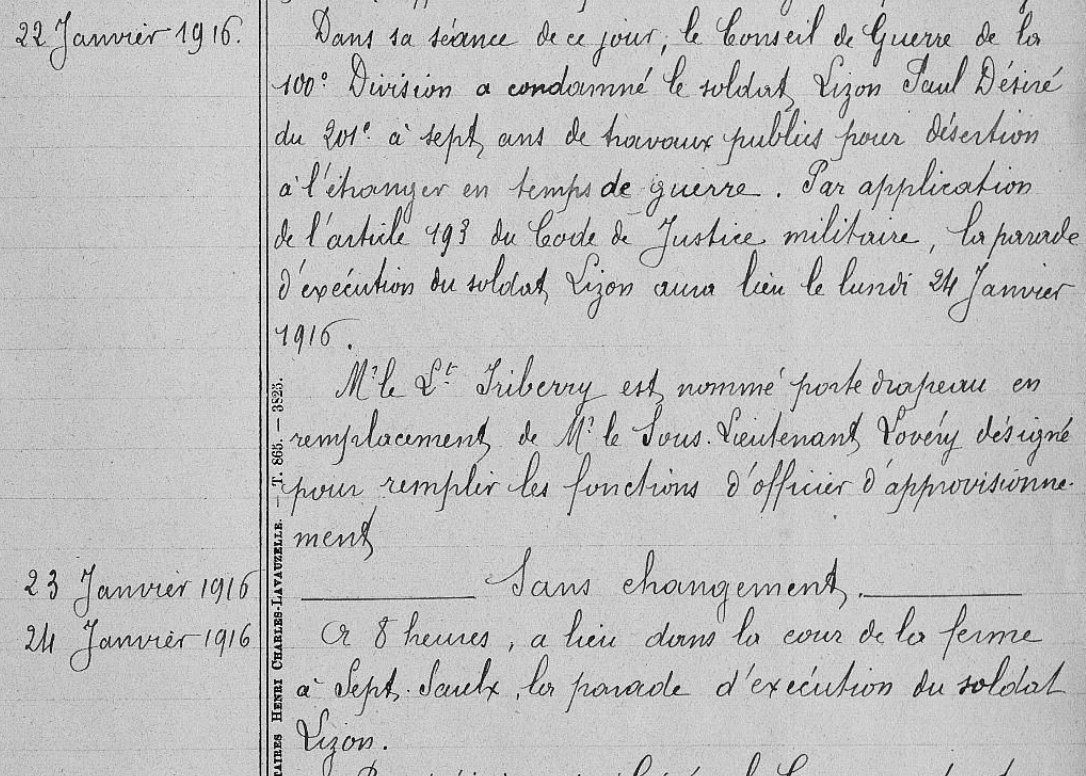 22 Janvier 1916.
Dans sa séance de ce jour, le Conseil de Guerre de la
100e Division a condamné le soldat Lizon Paul Désiré
du 201e à sept ans de travaux publics pour désertion
à l'étranger en temps de guerre. Par application
de l'article 193 du Code de Justice militaire, la parade
d'exécution du soldat Lizon aura lieu le lundi 24 Janvier
1916.
Mr le Lt Iriberry est nommé porte drapeau en
remplacement de Mr le Sous-Lieutenant Lovéry désigné
pour remplir les fonctions d'officier d'approvisionne-
ment
23 Janvier 1916
Sans changement.
24 Janvier 1916
A 8 heures, a lieu dans la cour de la ferme
à Sept-Saulx, la parade d'exécution du soldat
Lizon.
TAIRES HENRI CHARLES-LAVAUZELLE. — T. 865. — 3825.